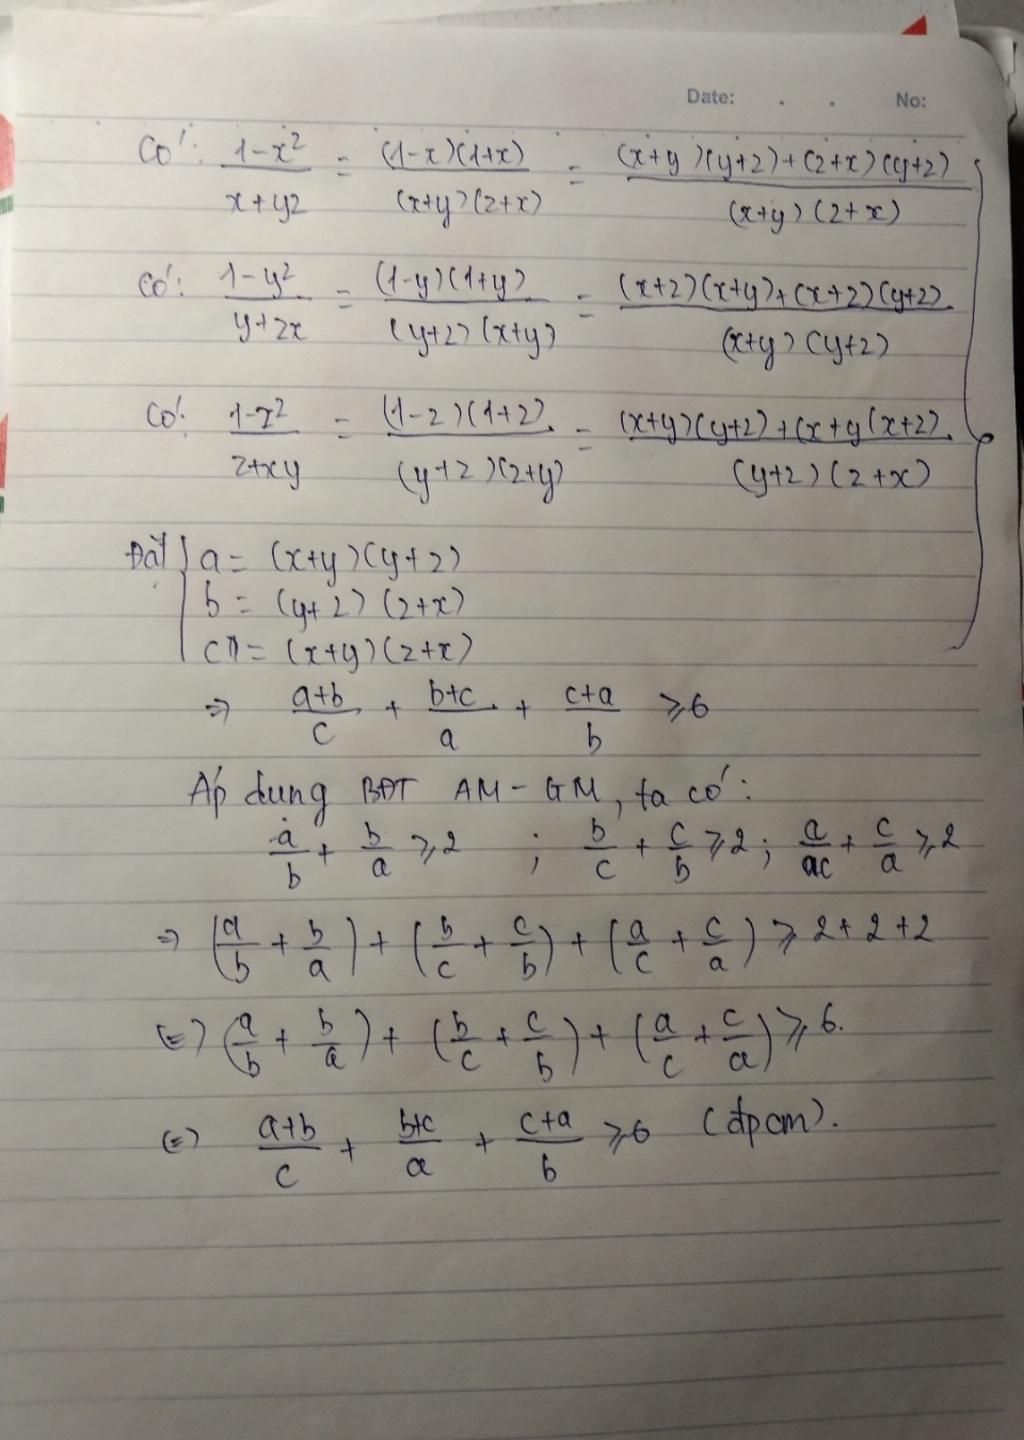 Date: . . No:
Có: \frac{1-x^2}{x+yz} = \frac{(1-x)(1+x)}{(x+y)(z+x)} = \frac{(x+y)(y+z)+(z+x)(y+z)}{(x+y)(z+x)}
Có: \frac{1-y^2}{y+zx} = \frac{(1-y)(1+y)}{(y+z)(x+y)} = \frac{(x+z)(x+y)+(x+z)(y+z)}{(x+y)(y+z)}
Có: \frac{1-z^2}{z+xy} = \frac{(1-z)(1+z)}{(y+z)(z+y)} = \frac{(x+y)(y+z)+(x+y(x+z)}{(y+z)(z+x)}
Đặt { a = (x+y)(y+z)
b = (y+z)(z+x)
c = (x+y)(z+x)
=> \frac{a+b}{c} + \frac{b+c}{a} + \frac{c+a}{b} ⩾ 6
Áp dụng BĐT AM-GM, ta có:
\frac{a}{b} + \frac{b}{a} ⩾ 2 ; \frac{b}{c} + \frac{c}{b} ⩾ 2 ; \frac{a}{ac} + \frac{c}{a} ⩾ 2
=> (\frac{a}{b} + \frac{b}{a}) + (\frac{b}{c} + \frac{c}{b}) + (\frac{a}{c} + \frac{c}{a}) ⩾ 2+2+2
(=) (\frac{a}{b} + \frac{b}{a}) + (\frac{b}{c} + \frac{c}{b}) + (\frac{a}{c} + \frac{c}{a}) ⩾ 6.
(=) \frac{a+b}{c} + \frac{b+c}{a} + \frac{c+a}{b} ⩾ 6 (đpcm).